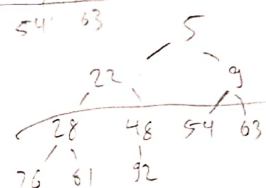 54 63
5
22 9
28 48 54 63
76 81 92